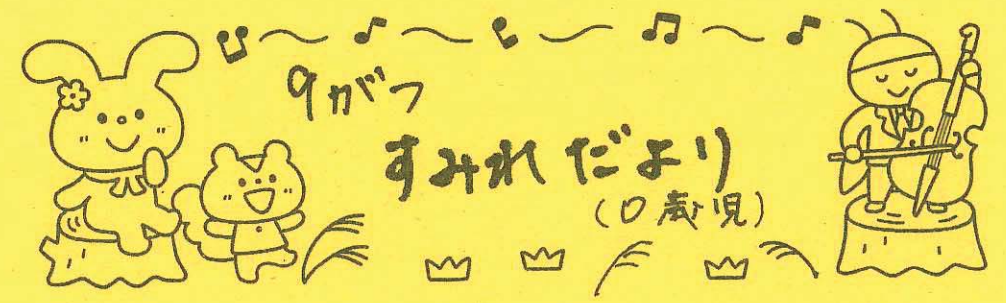 9がつ
すみれだより
(0歳児)